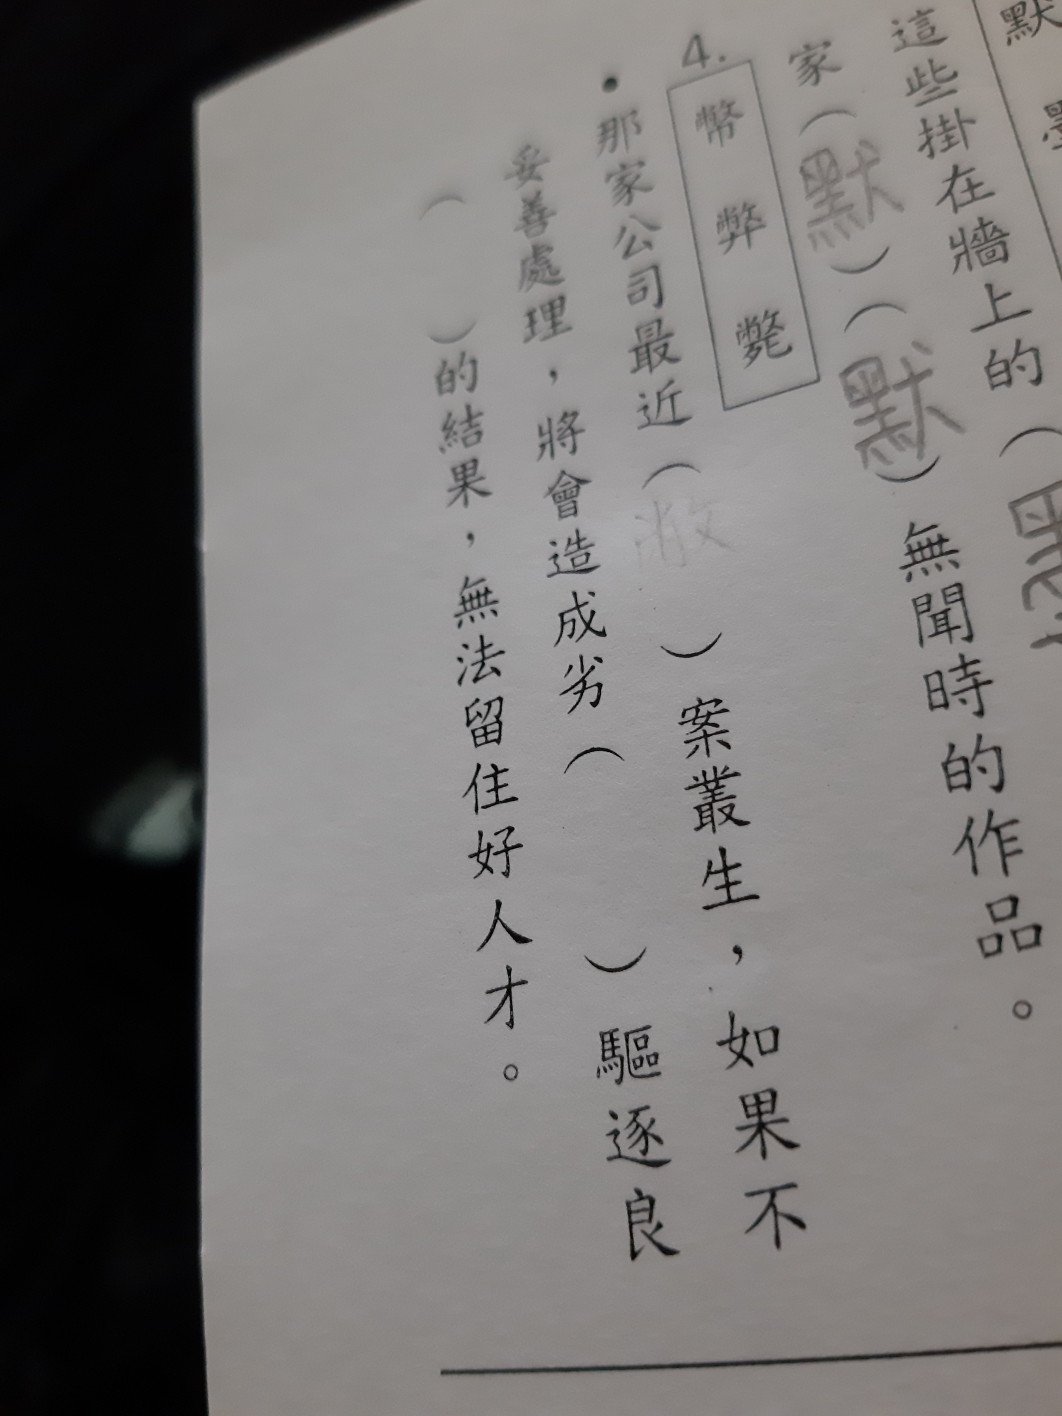 默
這些掛在牆上的（墨
家（默）（默）無聞時的作品。
4. 幣 弊 斃
•那家公司最近（敝）案叢生，如果不
妥善處理，將會造成劣（）驅逐良
（）的結果，無法留住好人才。